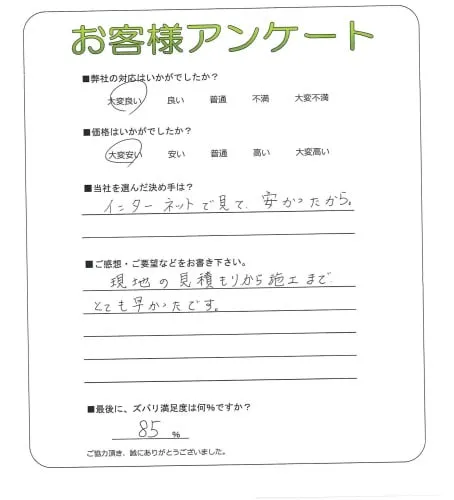 お客様アンケート
■弊社の対応はいかがでしたか?
大変良い 良い 普通 不満 大変不満
■価格はいかがでしたか?
大変安い 安い 普通 高い 大変高い
■当社を選んだ決め手は?
インターネットで見て、安かったから。
■ご感想・ご要望などをお書き下さい。
現地の見積もりから施工まで
とても早かったです。
■最後に、ズバリ満足度は何%ですか?
85 %
ご協力頂き、誠にありがとうございました。